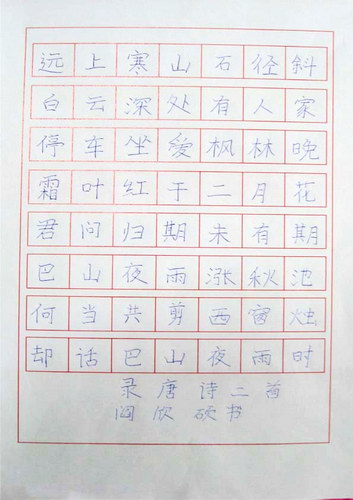 远上寒山石径斜
白云深处有人家
停车坐爱枫林晚
霜叶红于二月花
君问归期未有期
巴山夜雨涨秋池
何当共剪西窗烛
却话巴山夜雨时
录唐诗二首
阎欣硬书